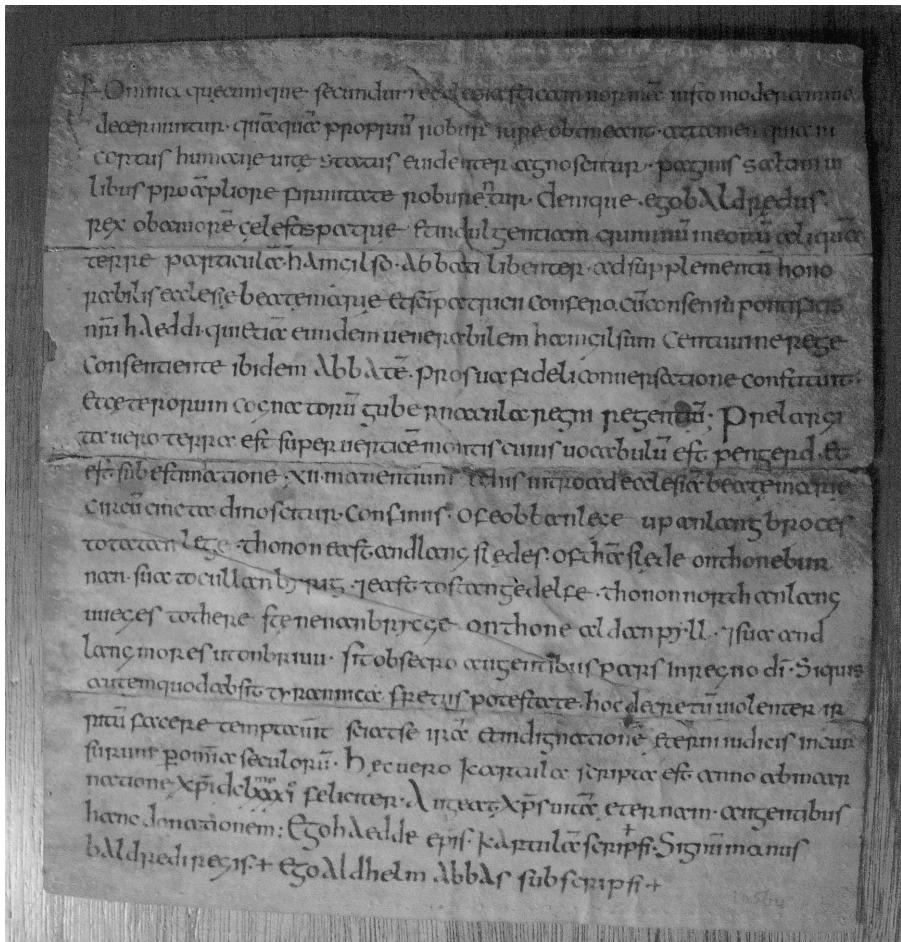 + Omnia quecumque secundum recclesiasticam normā iusto moderamine
decernuntur · quāquā propriū robur iure obtineant · attamen quia in
certus humane uite status euidenter agnoscitur · paginis saltim ui
libus pro āpliore firmitate roburentur · denique · ego bAldredus ·
rex ob amorē çelestis patrię · et indulgentiam criminū meorū aliquā
terrę particulā hAmgilso · Abbati libenter · ad supplementū hono
rabilis ecclesię beatę marię et sc̄i patricii confero · cū consensu pontificis
nr̄i hAeddi · qui etiā eundem uenerabilem hæmgilsum Centuuine rege
consentiente ibidem AbbAtē · pro sua fideli conuersatione constituit ·
Et ceterorum cognatorū gubernacula regni regentiū ; Prelargi
ta uero terra est super uerticē montis cuius uocabulū est pengerd · Et
est sub estimatione · xii · manentium tenus introad ecclesiā beatę marię
circūcincta dinoscitur · Confinus · Of cobbanleçe up anlang broces
to tatan lege · thonon east andlang slędes · of thā slęde on thone bur
nan · sua to cullanbyrig · ⁊ east to stangedelfe · thonon north anlang
uueges to there stęnenan brycge on thone aldan pyll · ⁊ sua and
lang mores ut on briuu · sit obsecro augentibus pars In regno dī · Siquis
autem quod absit tyrannica fretus potestate · hoc decretū uiolenter ir
ritū facere temptauīt sciat se irā et indignationē eterni iudicis incur
surum ꝑ omīa seculorū · hęc uero kartula scripta est anno ab incarn
natione xp̄i dclxxxi° feliciter · Augeat xp̄s uitā eternam · augentibus
hanc donationem ; Ego hAedde epīs · kartulā scripsi + · Signū manus
bAldredi regis + Ego Aldhelm AbbAs subscripsi +